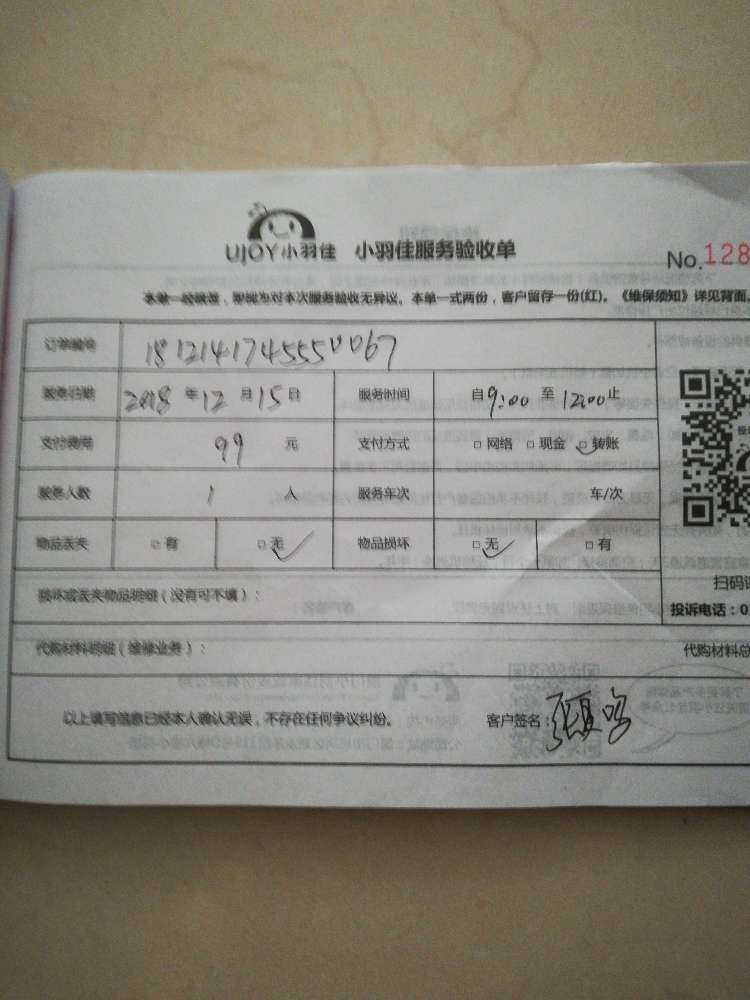 UJOY小羽佳 小羽佳服务验收单
No.128
本单一经签署，即视为对本次服务验收无异议。本单一式两份，客户留存一份(红)。《维保须知》详见背面。
订单编号 1812141745550067
服务日期 2018年12月15日 服务时间 自9:00至12:00止
支付费用 99元 支付方式 □网络 □现金 ☑转账
服务人数 1人 服务车次 车/次
物品丢失 □有 ☑无 物品损坏 ☑无 □有
损坏或丢失物品明细（没有可不填）：
扫码
投诉电话：0
代购材料明细（维修业务）： 代购材料总
以上填写信息已经本人确认无误，不存在任何争议纠纷。 客户签名：